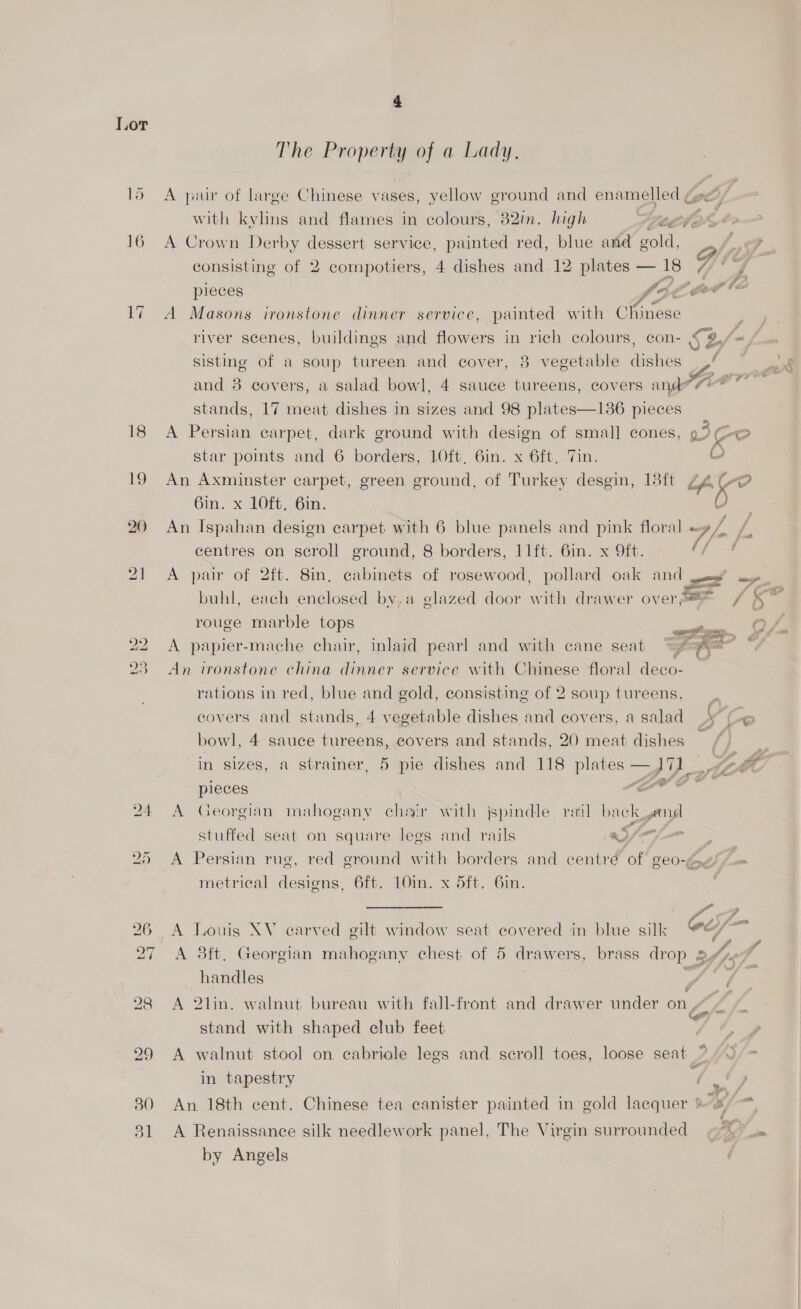 4
Lot
The Property of a Lady.
15 A pair of large Chinese vases, yellow ground and enamelled
with kylins and flames in colours, 32in. high
16 A Crown Derby dessert service, painted red, blue and gold,
consisting of 2 compotiers, 4 dishes and 12 plates — 18
pieces
17 A Masons ironstone dinner service, painted with Chinese
river scenes, buildings and flowers in rich colours, con-
sisting of a soup tureen and cover, 3 vegetable dishes
and 3 covers, a salad bowl, 4 sauce tureens, covers and
stands, 17 meat dishes in sizes and 98 plates—136 pieces
18 A Persian carpet, dark ground with design of small cones,
star points and 6 borders, 10ft. 6in. x 6ft. 7in.
19 An Axminster carpet, green ground, of Turkey desgin, 13ft
6in. x 10ft. 6in.
20 An Ispahan design carpet with 6 blue panels and pink floral
centres on scroll ground, 8 borders, 11ft. 6in. x 9ft.
21 A pair of 2ft. 8in. cabinets of rosewood, pollard oak and
buhl, each enclosed by a glazed door with drawer over,
rouge marble tops
22 A papier-mache chair, inlaid pearl and with cane seat
23 An ironstone china dinner service with Chinese floral deco-
rations in red, blue and gold, consisting of 2 soup tureens,
covers and stands, 4 vegetable dishes and covers, a salad
bowl, 4 sauce tureens, covers and stands, 20 meat dishes
in sizes, a strainer, 5 pie dishes and 118 plates — 171
pieces
24 A Georgian mahogany chair with spindle rail back and
stuffed seat on square legs and rails
25 A Persian rug, red ground with borders and centre of geo-
metrical designs, 6ft. 10in. x 5ft. 6in.
26 A Louis XV carved gilt window seat covered in blue silk
27 A 3ft. Georgian mahogany chest of 5 drawers, brass drop
handles
28 A 21in. walnut bureau with fall-front and drawer under on
stand with shaped club feet
29 A walnut stool on cabriole legs and scroll toes, loose seat
in tapestry
30 An 18th cent. Chinese tea canister painted in gold lacquer
31 A Renaissance silk needlework panel, The Virgin surrounded
by Angels